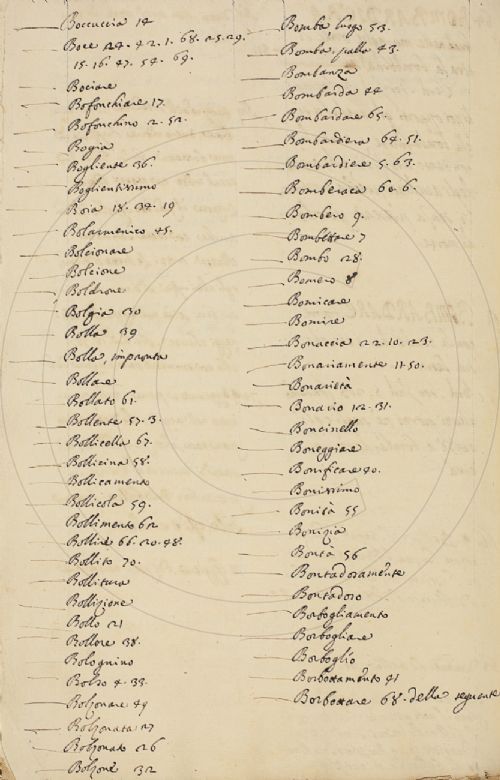 Boccuccia 14
Boce 24. 42. 1. 68. 25. 29.
15. 16. 47. 54. 69.
Bociare
Bofonchiare 17.
Bofonchino 2. 52.
Bogia
Bogliente 36.
Boglientissimo
Boia 18. 34. 19
Bolarmenico 45.
Bolcionare
Bolcione
Boldrone
Bolgia 30
Bolla 39
Bolla, impronta
Bollare
Bollato 61.
Bollente 57. 3.
Bollicella 67.
Bollicina 58.
Bollicamento
Bollicola 59.
Bollimento 62
Bollire 66. 20. 48.
Bollito 70.
Bollitura
Bollizione
Bollo 21
Bollore 38.
Bolognino
Bolso 4. 33.
Bolzonare 49
Bolzonata 27
Bolzonato 26
Bolzone 32
Bomba, luogo 53.
Bomba, palla 43.
Bombanza
Bombarda 44
Bombardare 65.
Bombardiera 64. 51.
Bombardiere 5. 63.
Bomberaca 60. 6.
Bombero 9.
Bombettare 7
Bombo 28.
Bomero 8
Bomicare
Bomire
Bonaccia 22. 10. 23.
Bonariamente 11. 50.
Bonarietà
Bonario 12. 31.
Boncinello
Boneggiare
Bonificare 40.
Bonissimo
Bonità 55
Bonizia
Bontà 56
Bontadosamente
Bontadoso
Borbogliamento
Borbogliare
Borboglio
Borbottamento 41
Borbottare 68. della seguente